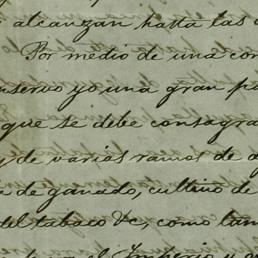 alcanzan hasta las
Por medio de una con
nservo yo una gran pa
que se debe consagra
y de varios ramos de a
a de ganado, cultivo de
del tabaco &c, como tam
el Imperio y